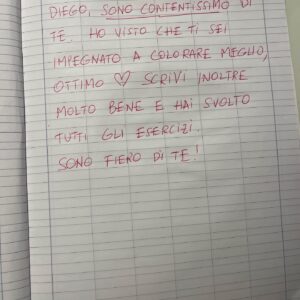 DIEGO, SONO CONTENTISSIMO DI
TE. HO VISTO CHE TI SEI
IMPEGNATO A COLORARE MEGLIO,
OTTIMO ♡ SCRIVI INOLTRE
MOLTO BENE E HAI SVOLTO
TUTTI GLI ESERCIZI.
SONO FIERO DI TE!